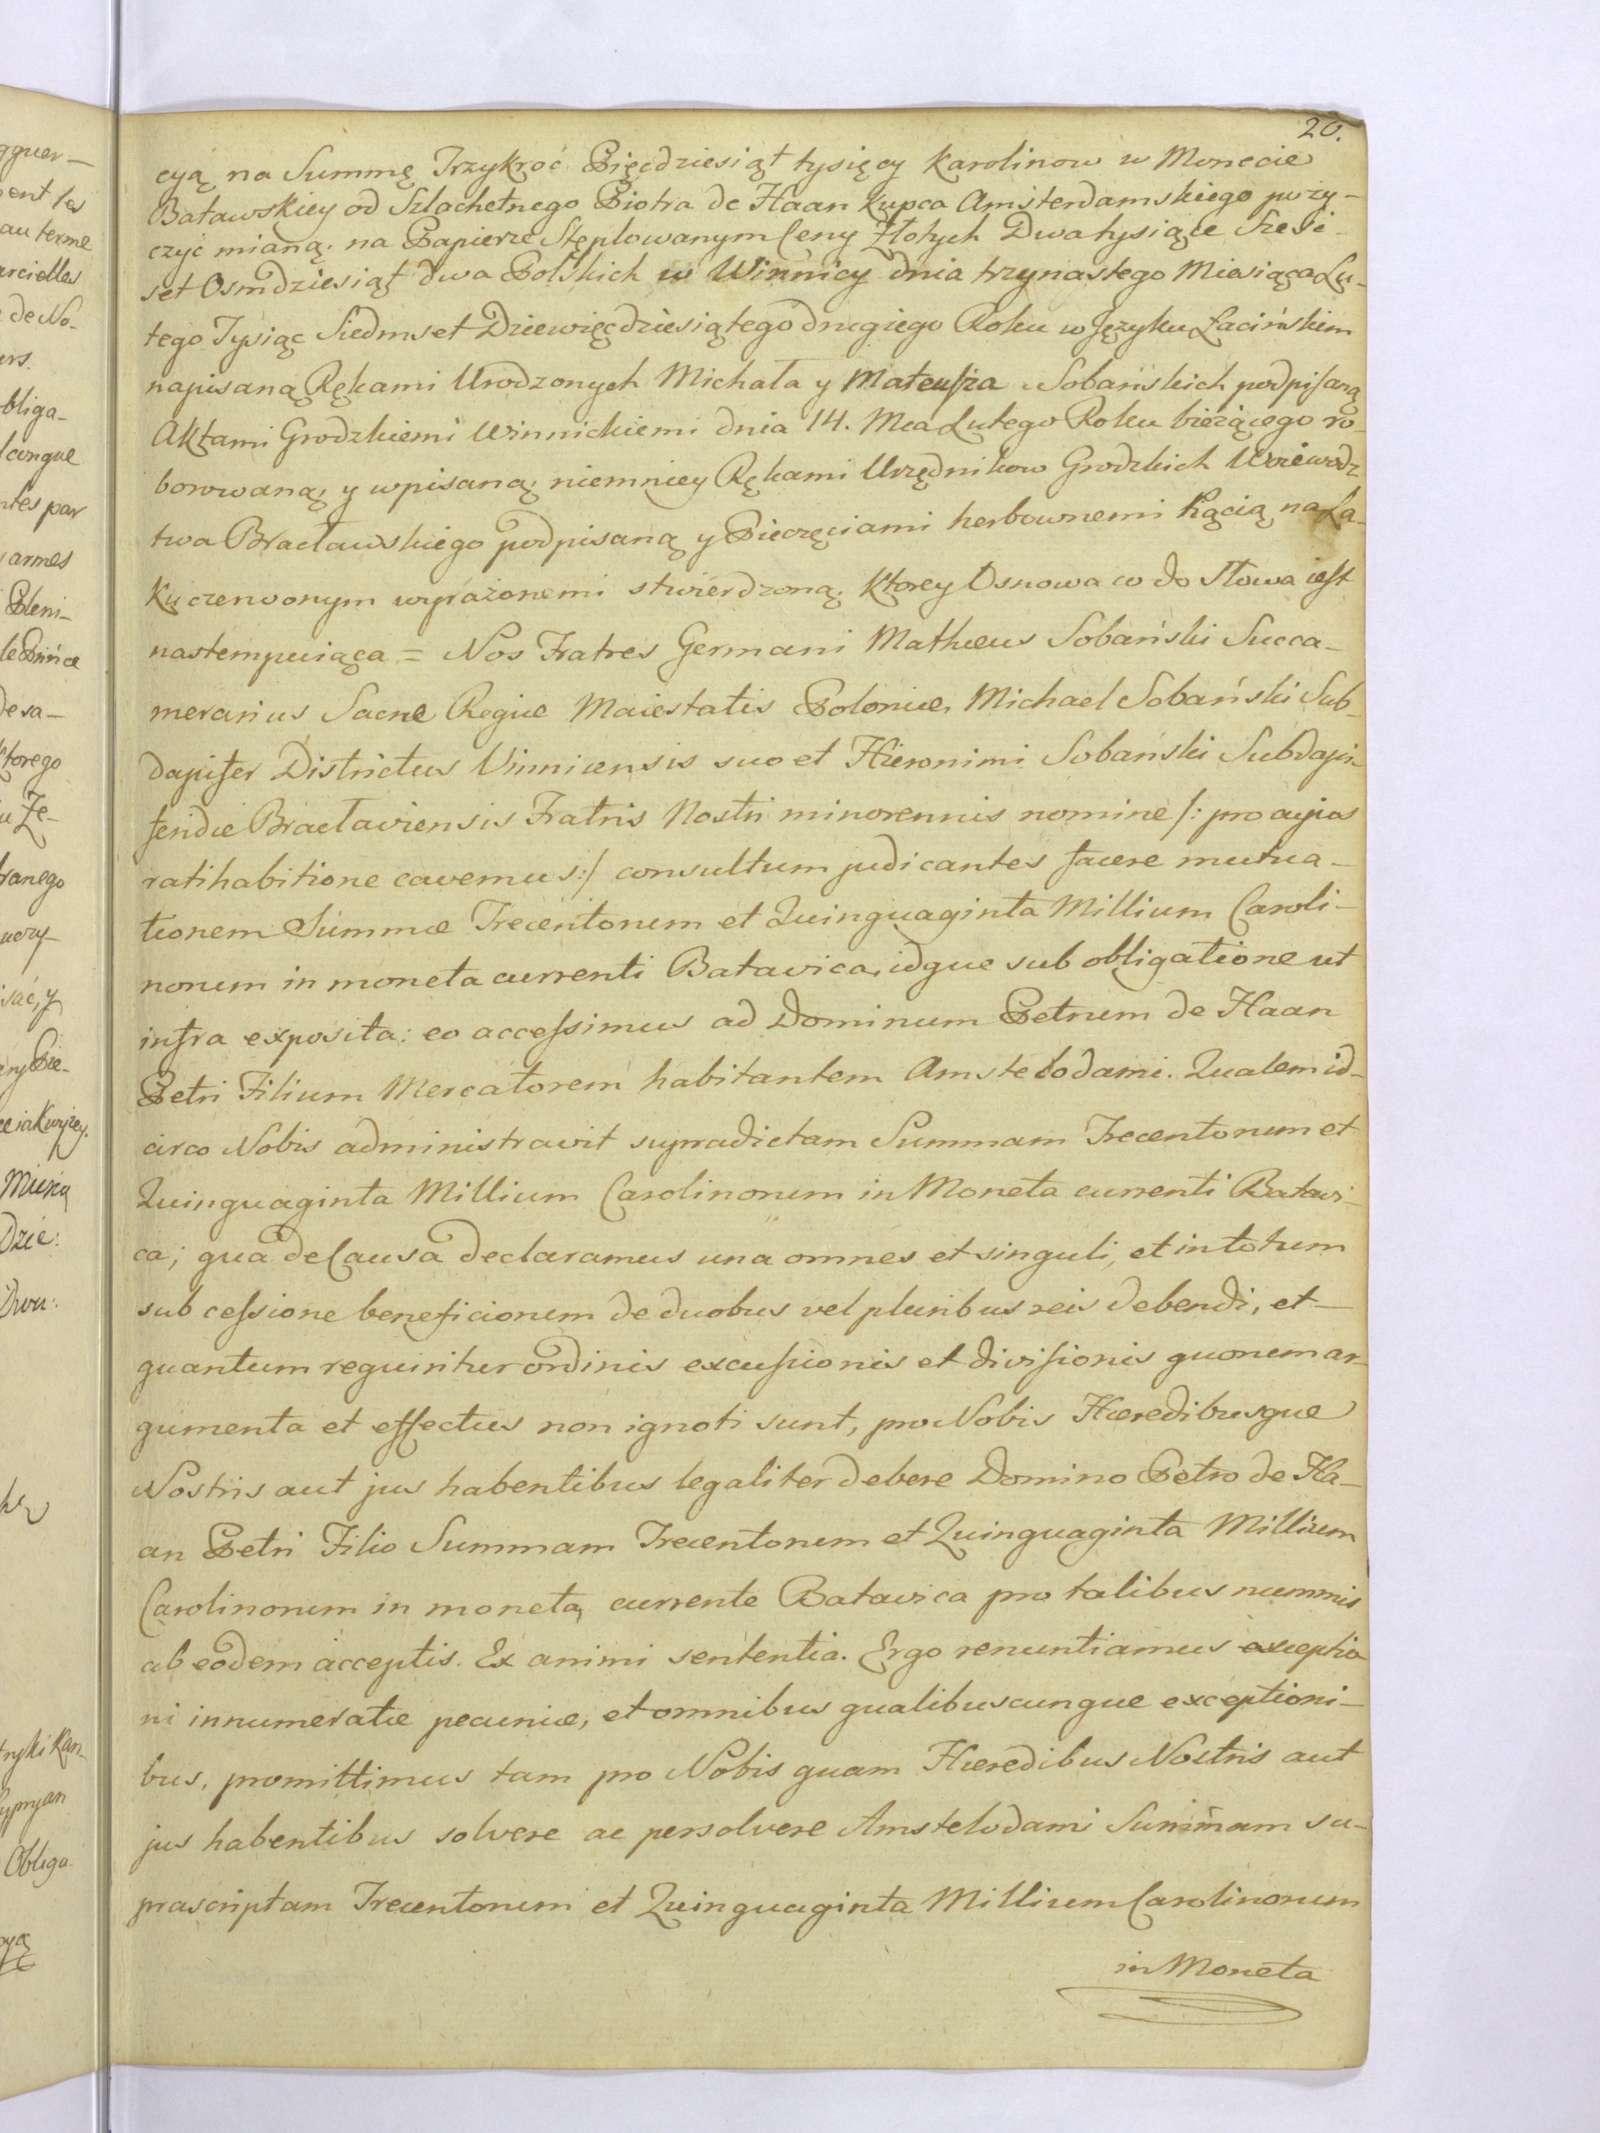 20.
cyą na Summę Trzykroć Pięcdziesiąt tysięcy Karolinow w Monecie
Batawskiey od Szlachetnego Piotra de Haan Kupca Amsterdamskiego poży-
czyć mianą, na Papierze Stęplowanym Ceny Złotych Dwa tysiące Sześć-
set Osmdziesiąt dwa Polskich w Winnicy dnia trzynastego Miesiąca Lu-
tego Tysiąc Siedmset Dziewięcdziesiątego drugiego Roku w Języku Łacińskim
napisaną Rękami Urodzonych Michała y Mateusza Sobańskich podpisaną
Aktami Grodzkiemi Winnickiemi dnia 14. Mca Lutego Roku bieżącego ro-
borowaną, y wpisaną, niemniey Rękami Urzędnikow Grodzkich Woiewodz-
twa Bracławskiego podpisaną y Pieczęciami herbownemi Pącią na La-
ku czerwonym wyrażonemi stwierdzoną, Ktorey Osnowa co do Słowa iest
nastempuiąca = Nos Fratres Germani Mathæus Sobański Succa-
merarius Sacræ Regiæ Maiestatis Poloniæ, Michael Sobański Sub-
dapifer Districtus Vinnicensis suo et Hieronimi Sobański Subdapi-
feridæ Bracłaviensis Fratris Nostri minorennis nomine /: pro cujus
ratihabitione cavemus :/ consultum judicantes facere mutua-
tionem Summæ Trecentorum et Quinquaginta Millium Caroli-
norum in moneta currenti Batavica, idque sub obligatione ut
infra exposita: eo accessimus ad Dominum Petrum de Haan
Petri Filium Mercatorem habitantem Amstelodami. Qualem id-
circo Nobis administravit supradictam Summam Trecentorum et
Quinquaginta Millium Carolinorum in Moneta currenti Batavi-
ca; qua de Causa declaramus una omnes et singuli, et in totum
sub cessione beneficiorum de duobus vel pluribus reis debendi, et
quantum requiritur ordinis excussionis et divisionis quorum ar-
gumenta et effectus non ignoti sunt, pro Nobis Hæredibusque
Nostris aut jus habentibus legaliter debere Domino Petro de Ha-
an Petri Filio Summam Trecentorum et Quinquaginta Millium
Carolinorum in moneta currente Batavica pro talibus nummis
ab eodem acceptis. Ex animi sententia. Ergo renuntiamus exceptio
ni innumeratæ pecuniæ, et omnibus qualibuscunque exceptioni-
bus, promittimus tam pro Nobis quam Hæredibus Nostris aut
jus habentibus solvere ac persolvere Amstelodami Summam su-
prascriptam Trecentorum et Quinquaginta Millium Carolinorum
in Moneta